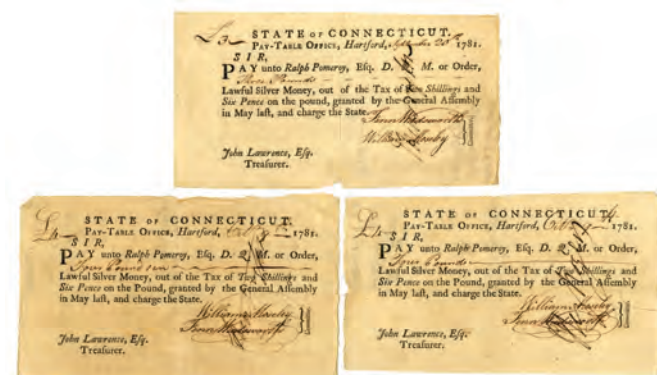 £3
STATE OF CONNECTICUT.
PAY-TABLE OFFICE, Hartford, September 20th 1781.
SIR,
PAY unto Ralph Pomeroy, Esq. D. Q. M. or Order,
Three Pounds
Lawful Silver Money, out of the Tax of Two Shillings and
Six Pence on the pound, granted by the General Assembly
in May last, and charge the State.
William Moseby
John Lawrence, Esq.
Treasurer.
£4
STATE OF CONNECTICUT.
PAY-TABLE OFFICE, Hartford, 1781.
SIR,
PAY unto Ralph Pomeroy, Esq. D. Q. M. or Order,
Four Pounds
Lawful Silver Money, out of the Tax of Two Shillings and
Six Pence on the Pound, granted by the General Assembly
in May last, and charge the State.
William Moseby
John Lawrence, Esq.
Treasurer.
£4
STATE OF CONNECTICUT.
PAY-TABLE OFFICE, Hartford, 1781.
SIR,
PAY unto Ralph Pomeroy, Esq. D. Q. M. or Order,
Four Pounds
Lawful Silver Money, out of the Tax of Two Shillings and
Six Pence on the Pound, granted by the General Assembly
in May last, and charge the State.
William Moseby
John Lawrence, Esq.
Treasurer.